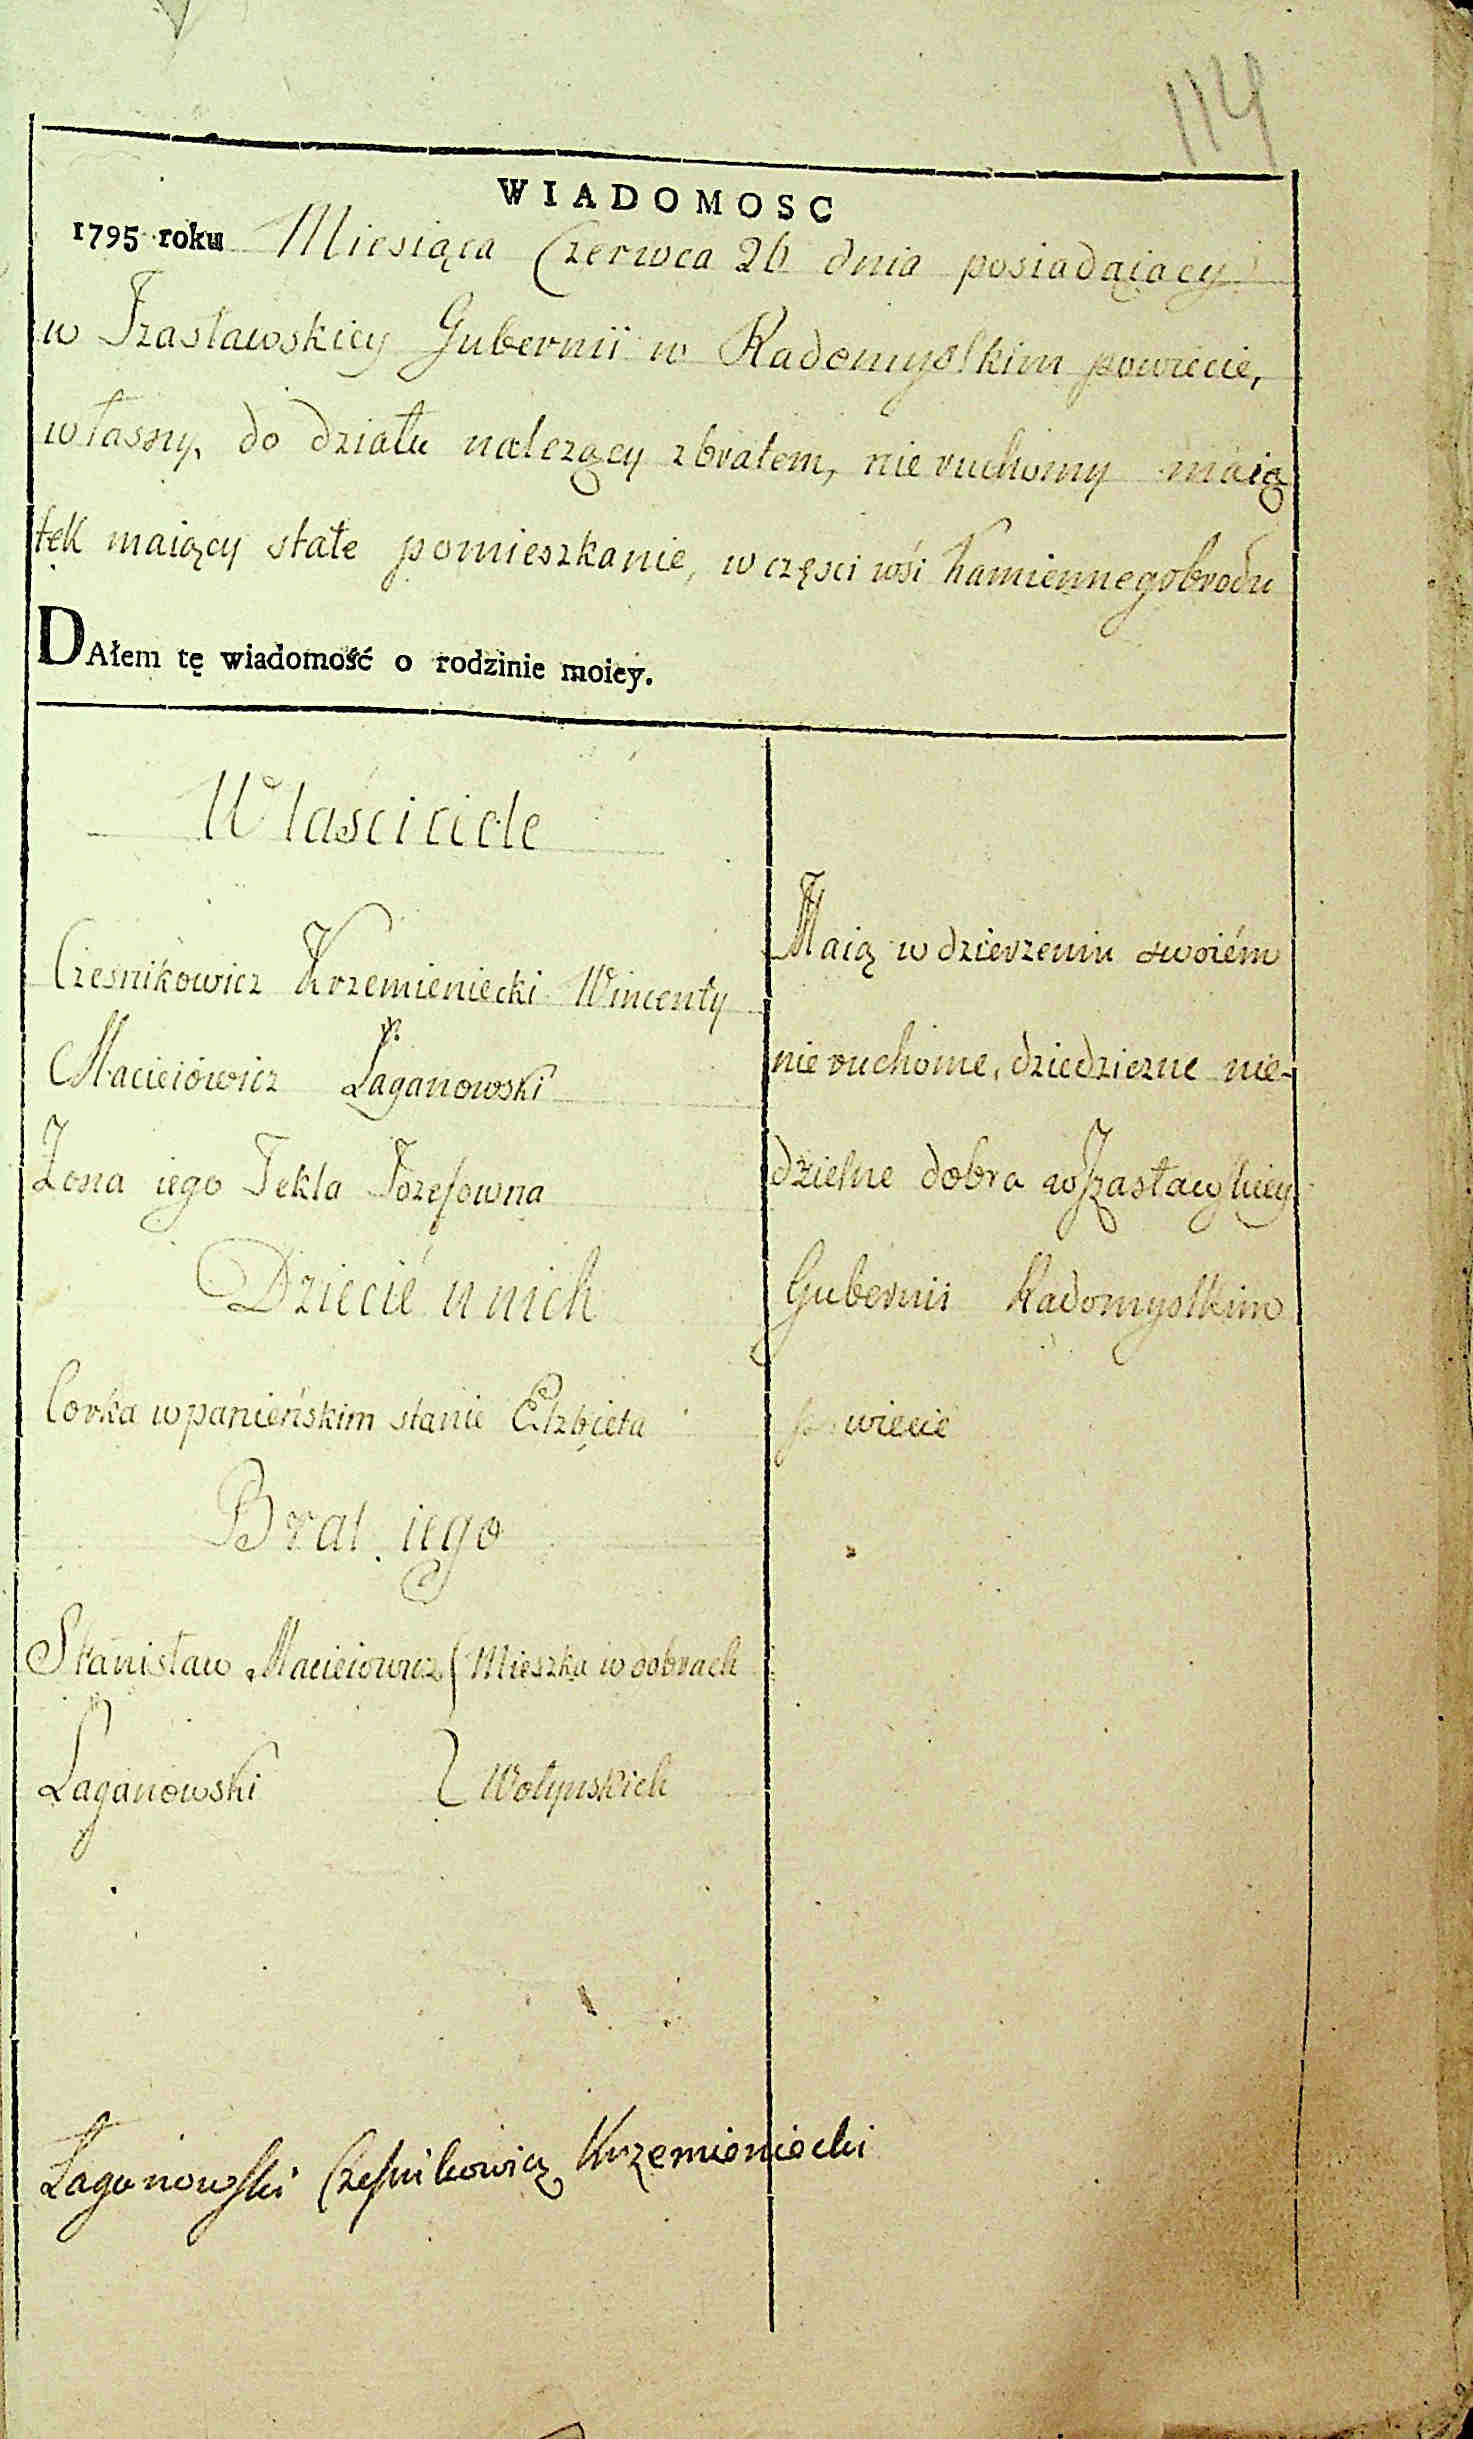 114
WIADOMOSC
1795 roku Miesiąca Czerwca 26 dnia posiadaiący
w Izasławskiey Gubernii w Radomyslkim powiecie,
własny, do działu należący z bratem, nieruchomy maią
tek maiący stałe pomieszkanie, w częsci wśi Kamiennegobrodu
DAłem tę wiadomość o rodzinie moiey.
Właściciele
Czesnikowicz Krzemieniecki Wincenty
Macieiowicz Łaganowski
Zona iego Tekla Jozefowna
Dziecie u nich
Corka w panieńskim stanie Elzbieta
Brat iego
Stanisław Macieiowicz { Mieszka w dobrach
Łaganowski } Wołynskich
Maią w dzierzeniu swoiém
nieruchome, dziedziczne nie-
dzielne dobra w Izasławskiey
Gubernii Radomyslkim
powiecie
Łaganowski Czesnikowicz Krzemieniecki